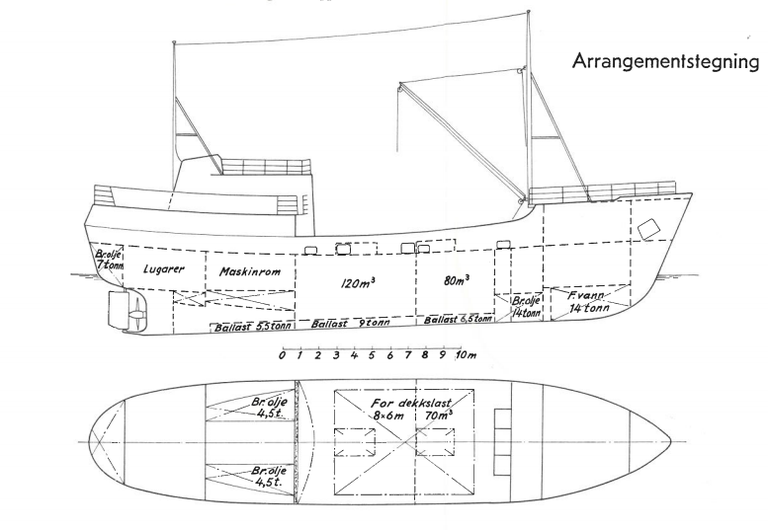 Arrangementstegning
Br.olje
7tonn
Lugarer
Maskinrom
120m³
80m³
Br.olje
14tonn
F.vann
14tonn
Ballast 5,5tonn
Ballast 9tonn
Ballast 6,5tonn
0 1 2 3 4 5 6 7 8 9 10m
Br.olje
4,5t.
For dekkslast
8×6m 70m³
Br.olje
4,5t.